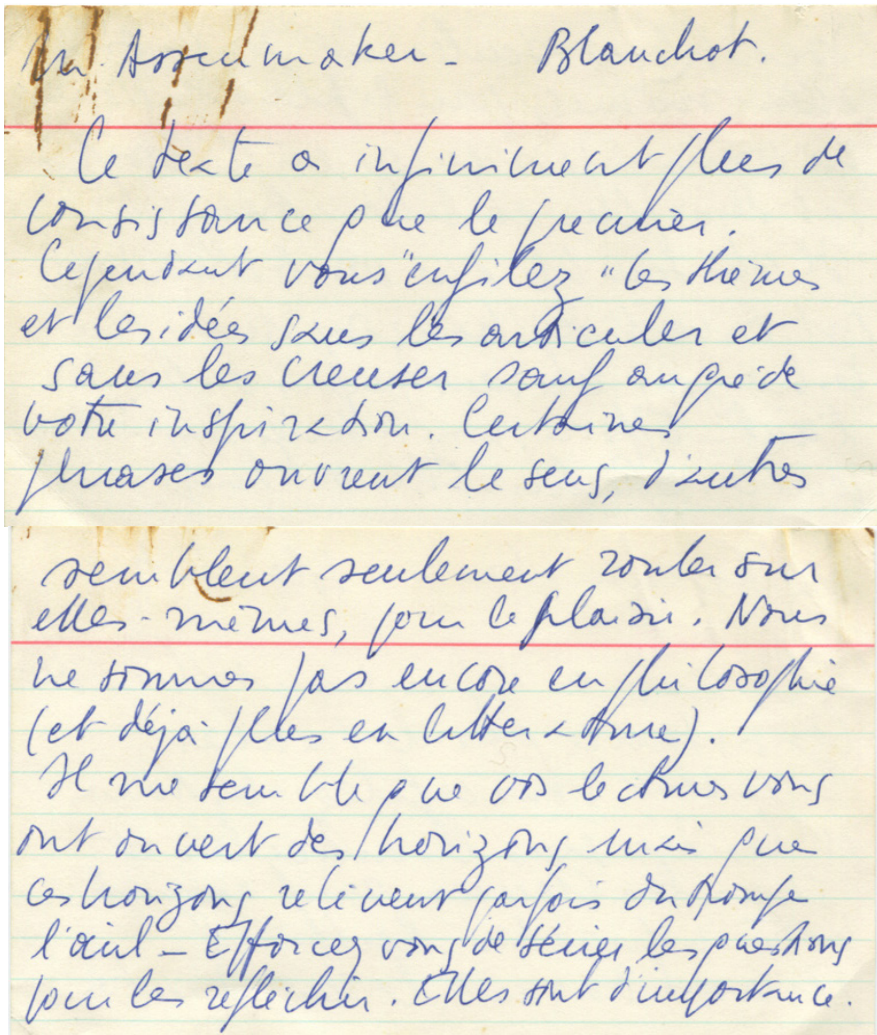 Assenmaker - Blanchot.
Ce texte a infiniment plus de
consistance que le premier.
Cependant vous "enfilez" les thèmes
et les idées sans les articuler et
sans les creuser sauf au gré de
votre inspiration. Certaines
phrases ouvrent le sens, d'autres
semblent seulement rouler sur
elles-mêmes, pour le plaisir. Nous
ne sommes pas encore en philosophie
(et déjà plus en littérature).
Il me semble que vos lectures vous
ont ouvert des horizons mais que
ces horizons relèvent parfois du trompe
l'œil - Efforcez vous de sérier les questions
pour les réfléchir. Elles sont d'importance.